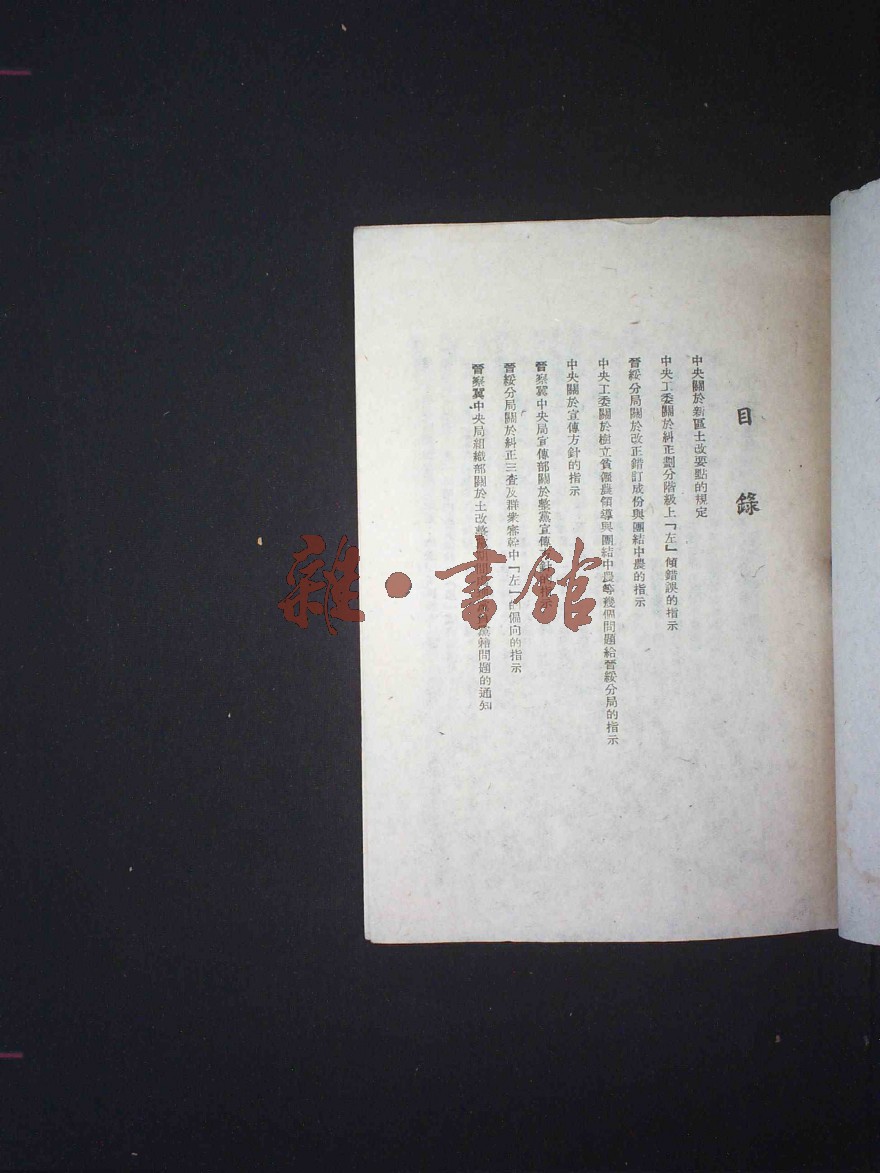 目錄
中央關於新區土改要點的規定
中央工委關於糾正劃分階級上「左」傾錯誤的指示
晉綏分局關於改正錯訂成份與團結中農的指示
中央工委關於樹立貧僱農領導與團結中農等幾個問題給晉綏分局的指示
中央關於宣傳方針的指示
晉察冀中央局宣傳部關於整黨宣傳方針的指示
晉綏分局關於糾正三查及群衆審幹中「左」的偏向的指示
晉察冀中央局組織部關於土改整黨期間黨籍問題的通知
雜·書館